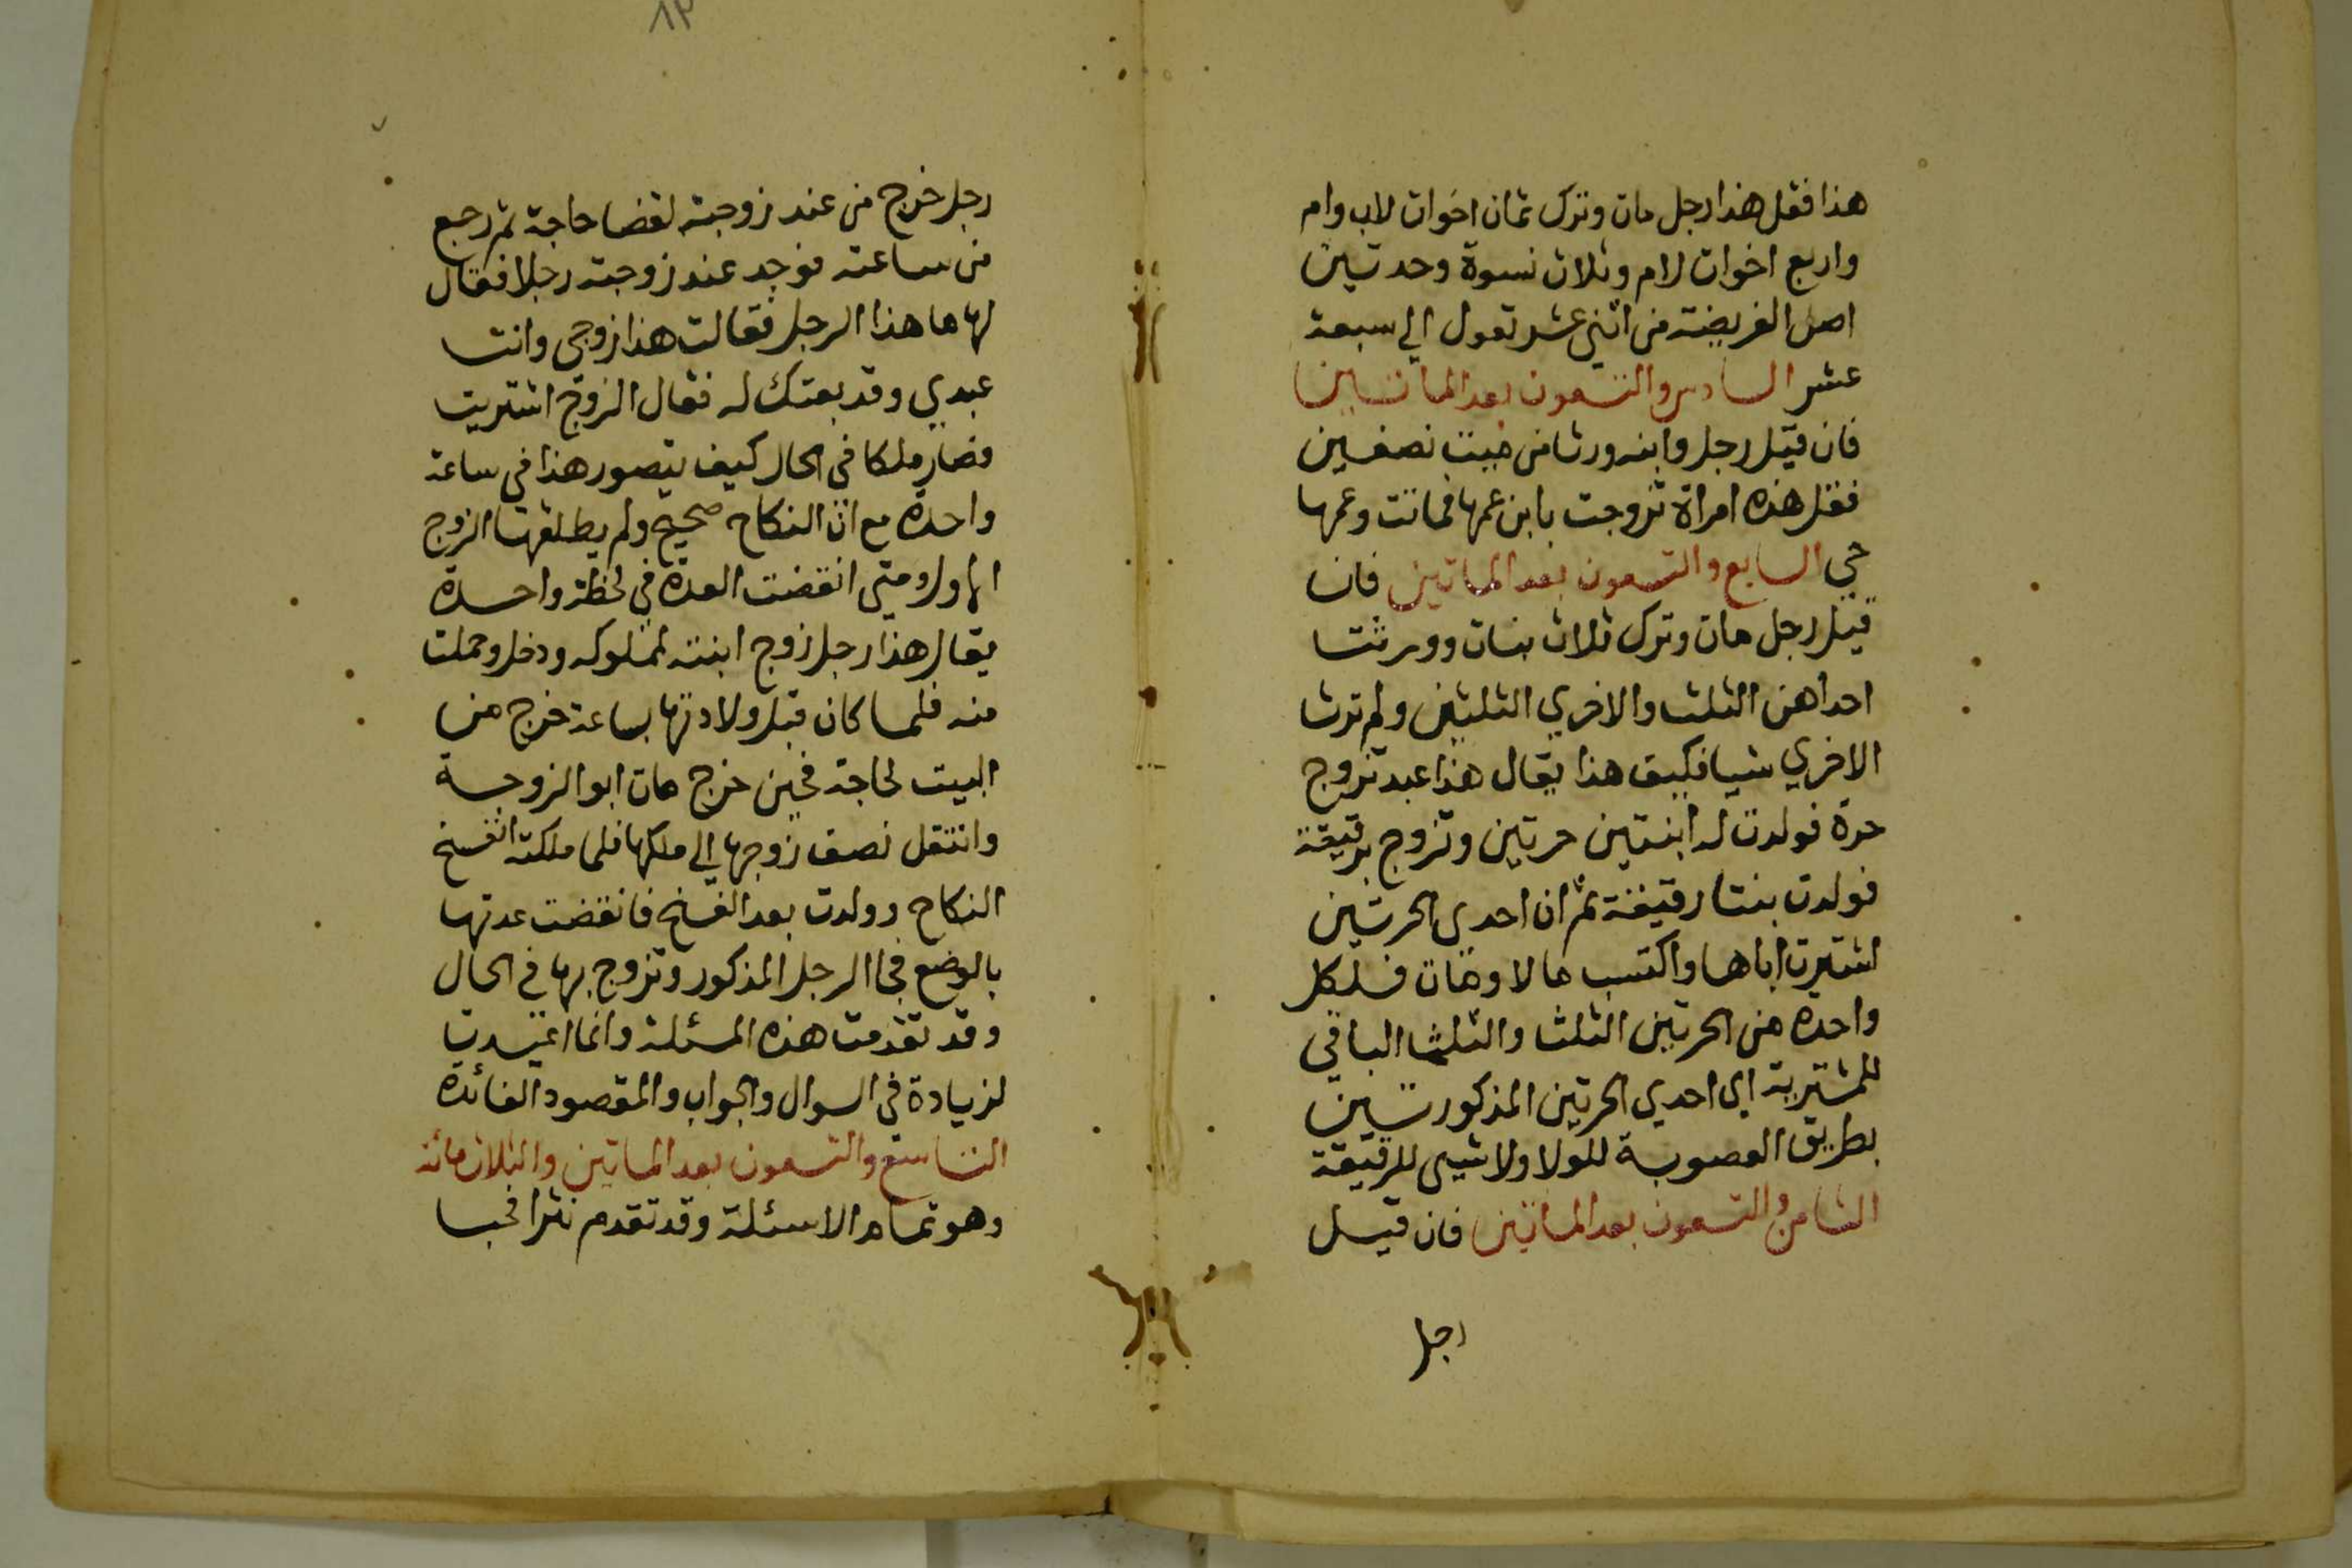 هذا فقل هذا رجل مات وترك ثمان اخوات لاب وام
واربع اخوات لام وثلاث نسوة وجدتين
اصل الفريضة من اثني عشر تعول الي سبعة
عشر السادس والتسعون بعد الماتين
فان قيل رجل وابنه ورثا من ميت نصفين
فقل هذه امراة تزوجت بابن عمها فماتت وعمها
حي السابع والتسعون بعد الماتين فان
قيل رجل مات وترك ثلاث بنات وورثت
احداهن الثلث والاخري الثلثين ولم ترث
الاخري شيا فكيف هذا يقال هذا عبد تزوج
حرة فولدت له ابنتين حرتين وتزوج برقيقة
فولدت بنتا رقيقة ثم ان احدي الحرتين
اشترت اباها واكتسب مالا ومات فلكل
واحدة من الحرتين الثلث والثلث الباقي
للمشترية اي احدي الحرتين المذكورتين
بطريق العصوبة للولا ولا شيي للرقيقة
الثامن والتسعون بعد الماتين فان قيل
رجل
٨٢
رجل خرج من عند زوجته لقضا حاجة ثم رجع
من ساعته فوجد عند زوجته رجلا فقال
لها ما هذا الرجل فقالت هذا زوجي وانت
عبدي وقد بعتك له فقال الزوج اشتريت
فصار ملكا في الحال كيف يتصور هذا في ساعة
واحدة مع ان النكاح صحيح ولم يطلقها الزوج
الاول ومتي انقضت العدة في لحظة واحدة
يقال هذا رجل زوج ابنته لمملوكه ودخل وحملت
منه فلما كان قبل ولادتها بساعة خرج من
البيت لحاجة فحين خرج مات ابو الزوجة
وانتقل نصف زوجها الي ملكها فلما ملكته انفسخ
النكاح وولدت بعد الفسخ فانقضت عدتها
بالوضع فجا الرجل المذكور وتزوج بها في الحال
وقد تقدمت هذه المسئلة وانما اعيدت
لزيادة في السوال والجواب والمقصود الفائدة
التاسع والتسعون بعد الماتين والثلاث مائة
وهو تمام الاسئلة وقد تقدم نثرا فحبا